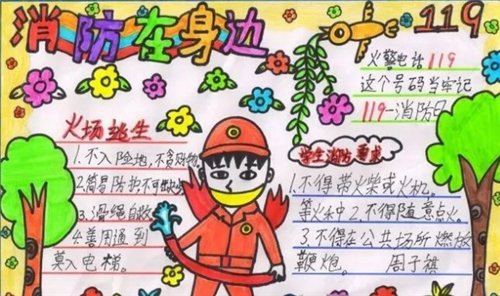 消防在身边
119
火警电话 119
这个号码当牢记
119-消防日
火场逃生
1.不入险地,不贪财物
2.简易防护不可缺少
3.滑绳自救
4.善用通到
莫入电梯。
学生消防要求
1.不得带火柴或火机。
等火种 2.不得随意点火。
3.不得在公共场所燃放
鞭炮。 周子祺